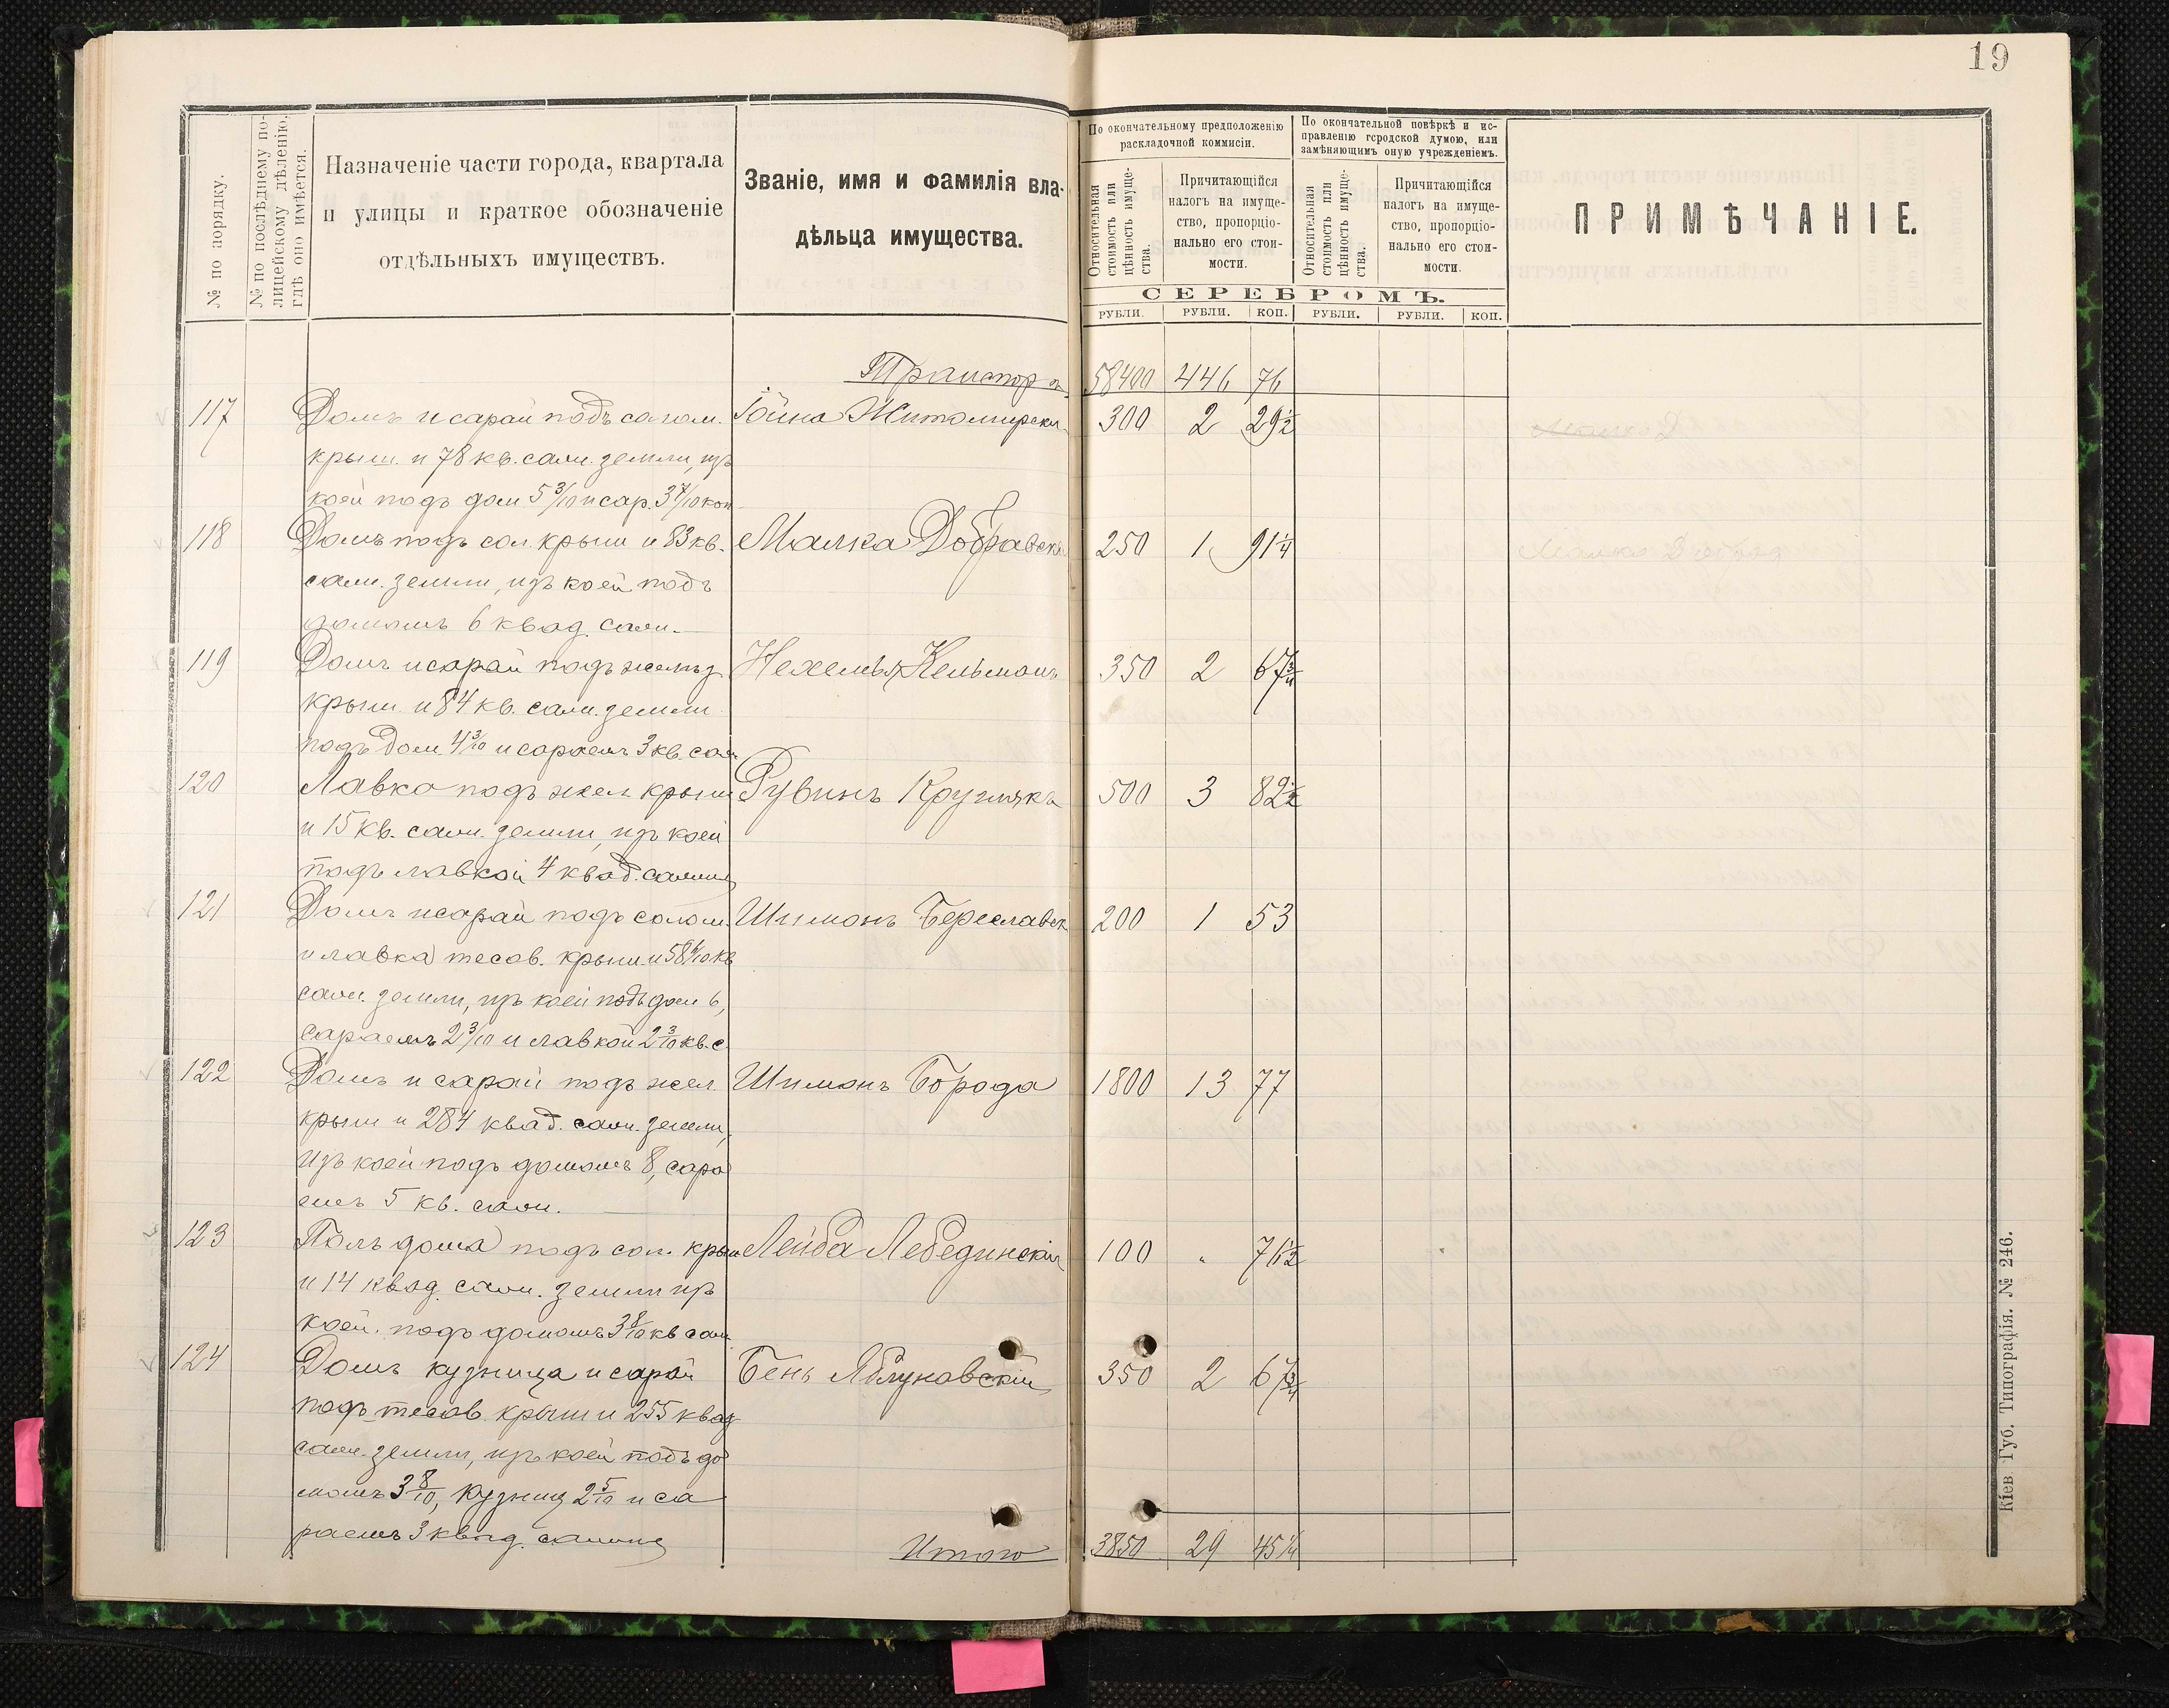 19
№ по порядку.
№ по послѣднему по-
лицейскому дѣленію,
гдѣ оно имѣется.
Назначеніе части города, квартала
и улицы и краткое обозначеніе
отдѣльныхъ имуществъ.
Званіе, имя и фамилія вла-
дѣльца имущества.
По окончательному предположенію
раскладочной коммисіи.
По окончательной повѣркѣ и ис-
правленію городской думою, или
замѣняющимъ оную учрежденіемъ.
Относительная
стоимость или
цѣнность имуще-
ства.
Причитающійся
налогъ на имуще-
ство, пропорціо-
нально его стои-
мости.
Относительная
стоимость или
цѣнность имуще-
ства.
Причитающійся
налогъ на имуще-
ство, пропорціо-
нально его стои-
мости.
ПРИМѢЧАНІЕ.
СЕРЕБРОМЪ.
РУБЛИ. РУБЛИ. КОП. РУБЛИ. РУБЛИ. КОП.
Транспортъ 58400 446 76
117 Домъ и сарай подъ солом. Іойна Житомирски 300 2 29½
крыш. и 78 кв. саж. земли, изъ
коей подъ дом 5 3/10 и сар. 3 7/10 коп
118 Домъ подъ сол. крыш и 83 кв. Малка Добравск 250 1 91¼
саж. земли, изъ коей подъ
домомъ 6 квад. саж.
119 Домъ и сарай подъ желѣз. Нехемья Кельманъ 350 2 67¾
крыш. и 84 кв. саж. земли
подъ дом 4 3/10 и сараемъ 3 кв. саж
120 Лавка подъ жел крыш Рувинъ Круглякъ 500 3 82½
и 15 кв. саж. земли, изъ коей
подъ лавкой 4 квад. сажни
121 Домъ и сарай подъ солом. Шимонъ Береславск 200 1 53
и лавка тесов. крыш. и 58 6/10 кв
саж. земли, изъ коей подъ дом 6,
сараемъ 2 3/10 и лавкой 2 3/10 кв. с.
122 Домъ и сарай подъ жел Шимонъ Борода 1800 13 77
крыш и 284 квад. саж. земли,
изъ коей подъ домомъ 8, сара
емъ 5 кв. саж.
123 Полъ дома подъ сол. крыш Лейба Лебединскій 100 " 76½
и 14 квад. саж. земли изъ
коей. подъ домомъ 3 8/10 кв саж
124 Домъ кузница и сарай Бень Яблуновскій 350 2 67¾
подъ тесов. крыш и 255 квад
саж. земли, изъ коей подъ до
момъ 3 8/10, кузниц 2 5/10 и са
раемъ 3 квад. сажня
Итого 3850 29 45¼
Малка Д
Малка Добрав
Кіев. Губ. Типографія. № 246.